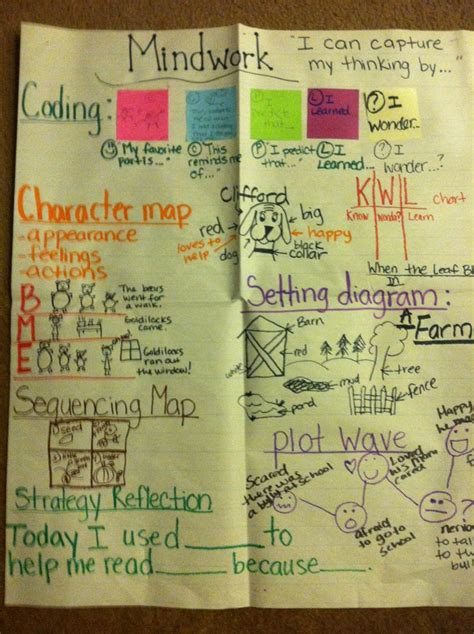 Mindwork
"I can capture
my thinking by..."
Coding:
L I
Learned...
? I
Wonder...
"My favorite
part is..."
C "This
reminds me
of..."
P "I predict
that..."
L I
Learned..."
? I
wonder..."
Character map
-appearance
-feelings
-actions
Clifford
red
big
happy
loves to
help
dog
black
collar
K W L chart
Know Wonder? Learn
When the Leaf
B
The bears
went for
a walk.
M
Goldilocks
came.
E
Goldilocks
ran out
the window!
Setting diagram:
A
Farm
Barn
red
white
mud
tree
pond
fence
Sequencing Map
seed
plot wave
Scared
there was
a bully at school
afraid
to go to
school
Loved
his mom
cared
Happy
he ma
nervous
to tal
to the
bull
Strategy Reflection
Today I used ______ to
help me read ______ because ______.